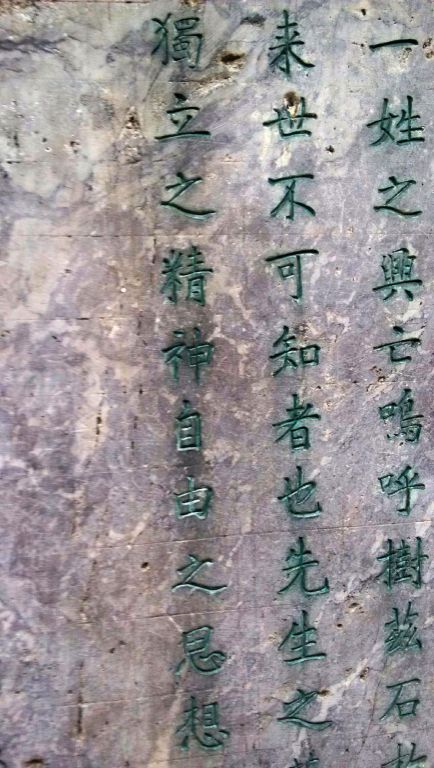 一姓之興亡嗚呼樹茲石於
来世不可知者也先生之
獨立之精神自由之思想